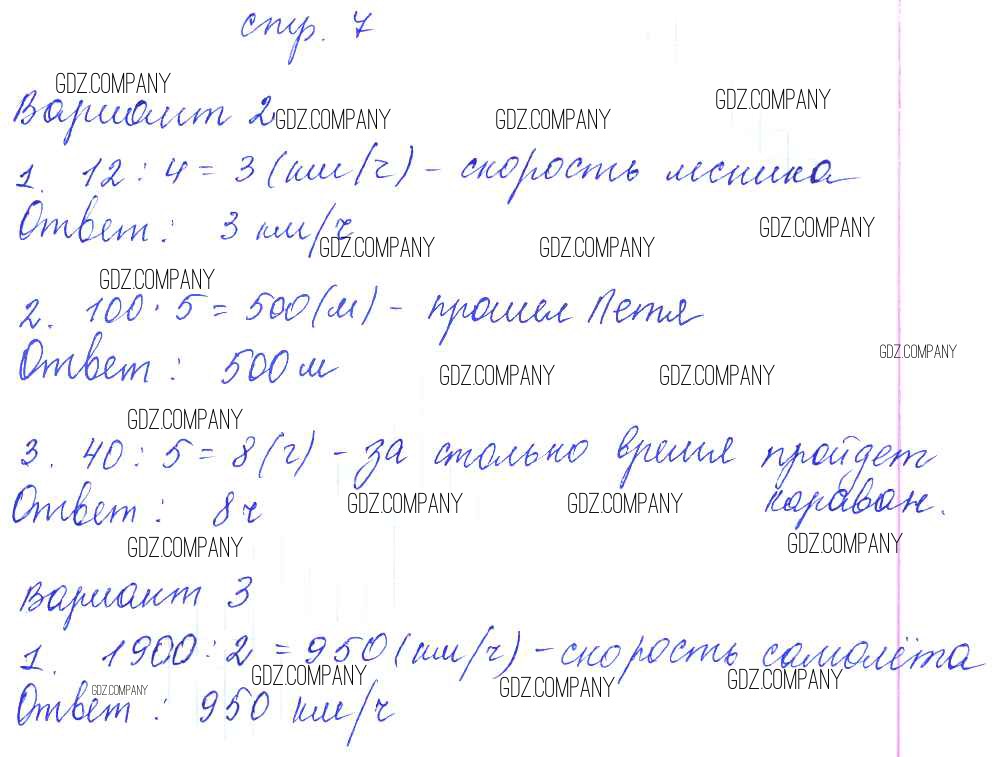 стр. 7
GDZ.COMPANY
Вариант 2
GDZ.COMPANY GDZ.COMPANY GDZ.COMPANY
1. 12 : 4 = 3 (км/ч) - скорость лесника
Ответ: 3 км/ч
GDZ.COMPANY GDZ.COMPANY GDZ.COMPANY
GDZ.COMPANY
2. 100 · 5 = 500 (м) - прошел Петя
Ответ: 500 м
GDZ.COMPANY GDZ.COMPANY GDZ.COMPANY
GDZ.COMPANY
3. 40 : 5 = 8 (ч) - за столько время пройдет
караван.
Ответ: 8 ч
GDZ.COMPANY GDZ.COMPANY
GDZ.COMPANY GDZ.COMPANY
Вариант 3
1. 1900 : 2 = 950 (км/ч) - скорость самолёта
GDZ.COMPANY GDZ.COMPANY GDZ.COMPANY GDZ.COMPANY
Ответ: 950 км/ч